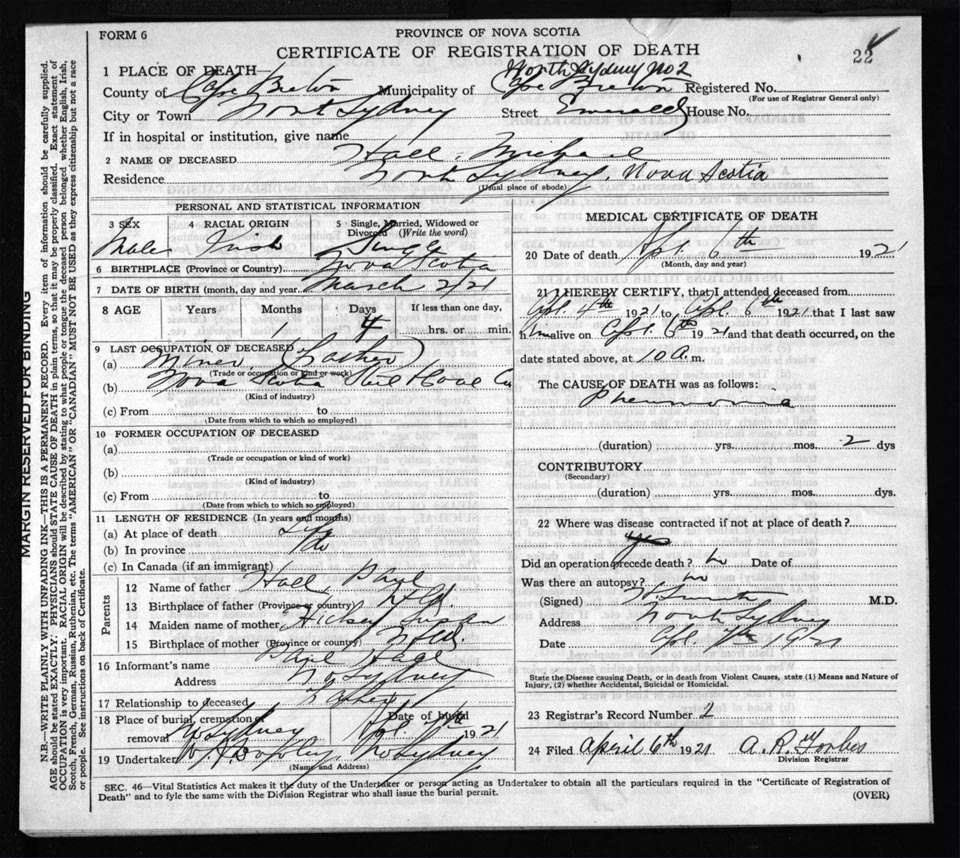 FORM 6
PROVINCE OF NOVA SCOTIA
CERTIFICATE OF REGISTRATION OF DEATH
22
1 PLACE OF DEATH—
North Sydney No 2
County of Cape Breton Municipality of Cape Breton Registered No.
(For use of Registrar General only)
City or Town North Sydney Street Emerald House No.
If in hospital or institution, give name
2 NAME OF DECEASED Hall Michael
Residence North Sydney, Nova Scotia
(Usual place of abode)
PERSONAL AND STATISTICAL INFORMATION
3 SEX 4 RACIAL ORIGIN 5 Single, Married, Widowed or Divorced (Write the word)
Male Irish Single
6 BIRTHPLACE (Province or Country) Nova Scotia
7 DATE OF BIRTH (month, day and year) March 2/21
8 AGE Years Months Days If less than one day,
1 4 hrs. or min.
9 LAST OCCUPATION OF DECEASED
(a) Miner (Father)
(Trade or occupation or kind of work)
(b) Nova Scotia Steel & Coal Co
(Kind of industry)
(c) From to
(Date from which to which so employed)
10 FORMER OCCUPATION OF DECEASED
(a)
(Trade or occupation or kind of work)
(b)
(Kind of industry)
(c) From to
(Date from which to which so employed)
11 LENGTH OF RESIDENCE (In years and months)
(a) At place of death Life
(b) In province do
(c) In Canada (if an immigrant)
Parents
12 Name of father Hall, Paul
13 Birthplace of father (Province or country) Nfld.
14 Maiden name of mother Hickey Susan
15 Birthplace of mother (Province or country) Nfld.
16 Informant's name Paul Hall
Address No Sydney
17 Relationship to deceased Father
18 Place of burial, cremation or removal No Sydney Date of burial Apl. 7th 1921
19 Undertaker No Sydney
(Name and Address)
MEDICAL CERTIFICATE OF DEATH
20 Date of death Apl. 6th 1921
(Month, day and year)
21 I HEREBY CERTIFY, that I attended deceased from
Apl. 4th 1921 to Apl. 6th 1921 that I last saw
him alive on Apl. 6th 1921 and that death occurred, on the
date stated above, at 10 a. m.
The CAUSE OF DEATH was as follows:
Pneumonia
(duration) yrs. mos. 2 dys
CONTRIBUTORY
(Secondary)
(duration) yrs. mos. dys.
22 Where was disease contracted if not at place of death?
yes
Did an operation precede death? no Date of
Was there an autopsy? no
(Signed) M.D.
Address North Sydney
Date Apl 7th 1921
State the Disease causing Death, or in death from Violent Causes, state (1) Means and Nature of
Injury, (2) whether Accidental, Suicidal or Homicidal.
23 Registrar's Record Number 2
24 Filed April 6th 1921 A. R. Forbes
Division Registrar
SEC. 46—Vital Statistics Act makes it the duty of the Undertaker or person acting as Undertaker to obtain all the particulars required in the "Certificate of Registration of
Death" and to fyle the same with the Division Registrar who shall issue the burial permit.
(OVER)
MARGIN RESERVED FOR BINDING
N.B.—WRITE PLAINLY WITH UNFADING INK—THIS IS A PERMANENT RECORD. Every item of information should be carefully supplied.
AGE should be stated EXACTLY. PHYSICIANS should STATE CAUSE OF DEATH in plain terms, so that it may be properly classified. Exact statement of
OCCUPATION is very important. RACIAL ORIGIN will be described by stating to what people or tongue the deceased person belonged whether English, Irish,
Scotch, French, German, Russian, Ruthenian, etc. The terms "AMERICAN" OR "CANADIAN" MUST NOT BE USED as they express citizenship but not a race
or people. See instructions on back of Certificate.